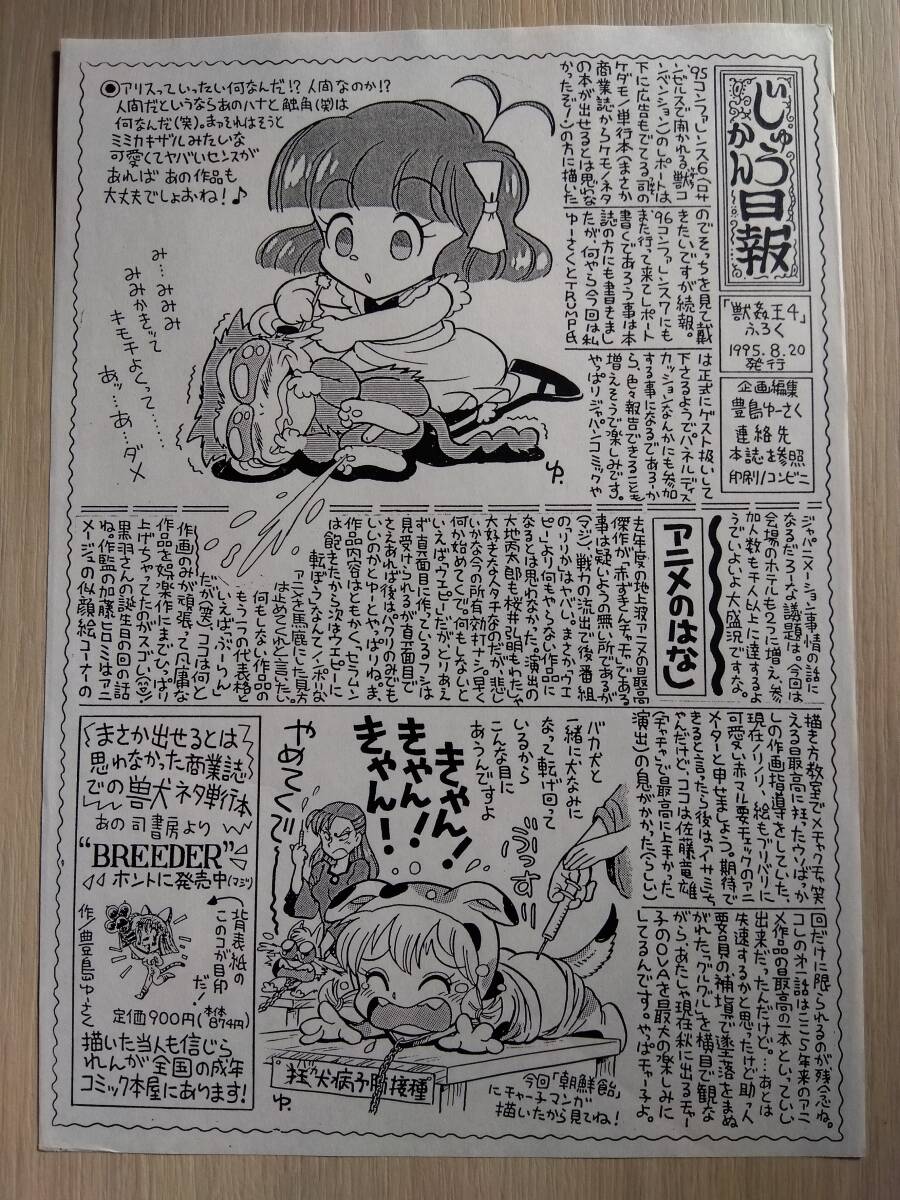 じゅうかん日報
「獣姦王4」
ふろく
1995.8.20
発行
企画編集
豊島ゆーさく
連絡先
本誌を参照
印刷/コンビニ
'95コンファレンス6(ロサ
ンゼルスで開かれる獣コ
ンベンション)のレポートは
下に広告もでてる司の
ケダモノ単行本(まさか
商業誌からケモノネタ
の本が出せるとは思わな
かったぞー)の方に描いた
のでそっちを見て戴
きたいですが続報。
'96コンファレンス7にも
また行って来てレポート
書くであろう事は本
誌の方にも書きまし
たが、何やら今回は私
ゆーさくとTRUMP氏
は正式にゲスト扱いして
下さるようでパネルディス
カッションなんかにも参加
する事になるであろうか
ら、色々報告できることも
増えそうで楽しみです。
やっぱりジャパンコミックや
ジャパニメーション事情の話に
なるだろーな議題は。今回は
会場のホテルも2つに増え、参
加人数も千人以上に達するよ
うでいよいよ大盛況ですな。
●アリスっていったい何なんだ!?人間なのか!?
人間だというならあのハナと触角(笑)は
何なんだ(笑)。まァそれはそうと
ミミカキザルみたいな
可愛くてヤバいセンスが
あれば あの作品も
大丈夫でしょおね!♪
み…みみみ
みみかきって
キモチよくって……
あッ…あ…ダメ
ゆ.
アニメのはなし
去年度の地上波アニメの最高
傑作が「赤ずきんチャチャ」である
事は疑いようの無い所であるが
(マジ)、戦力の流出で後番組
の「りりか」はヤバい。まさか「ウエ
ピー」より何もやらない作品に
なるとは思わなかった。演出の
大地丙太郎も桜井弘明もわたしゃ
大好きな人タチなのだが悲し
いかな今の所有効打ナシ。早く
何か始めてくで。何もしないと
いえば「ウエピー」だがとりあえ
ず真面目に作っているフシは
見受けられるが真面目で
さえあれば後はパクリのみでも
いいのかとゆーとやっぱりね。ま、
作品内容はともかく、「セラムン
は飽きたから次はウエピーに
転ぼう」なんてノンポリな
アニメを馬鹿にした見方
は止めてこれと言いたい。
何もしない作品の
もう一つの代表格と
いえば「ぶーりん」
だが(笑)、ココは何と
作画のみが頑張って凡庸な
作品を娯楽作にまでひっぱり
上げちゃってたのがスゴい(^^)
黒羽さんの誕生日の回の話
ね。作監の加藤ヒロミはアニ
メージュの似顔絵コーナーの
描き方教室でメチャクチャ笑
える最高に狂ったウソばっか
しの作画指導をしていた、
現在ノリノリ、絵もブリバリに
可愛い赤マル要チェックのアニ
メーターと申せましょう。期待で
きると言ったら後はアイサミッち
ゃんだけど、ココは佐藤竜雄
(チャチャで最高に上手かった
演出)の息がかかった(らしい)
回だけに限られるのが残念ね。
コレの第一話はここ5年来のアニ
メ作品の最高の一本といっていい
出来だったんだけど。…あとは
失速するかと思ったけど助っ人
要員の補填で墜落をまぬ
がれた「ググル」を横目で観な
がら、あたしゃ現在秋に出るチャー
子のOVAを最大の楽しみに
してるんです。やっぱチャー子よ。
まさか出せるとは
思わなかった商業誌
での獣犬ネタ単行本
あの司書房より
“BREEDER”
ホントに発売中(マジ)
背表紙の
このコが目印
だ!
作/豊島ゆーさく
定価900円(本体874円)
描いた当人も信じら
れんが全国の成年
コミック本屋にあります!
やめてくで
きゃん!
きゃん!
きゃん!
バカ犬と
一緒に犬なみに
なって転げ回って
いるから
こんな目に
あうんですよ
ぶっす
狂犬病予防接種
ゆ.
今回「朝鮮飴」
にチャー子マンガ
描いたから見てね!